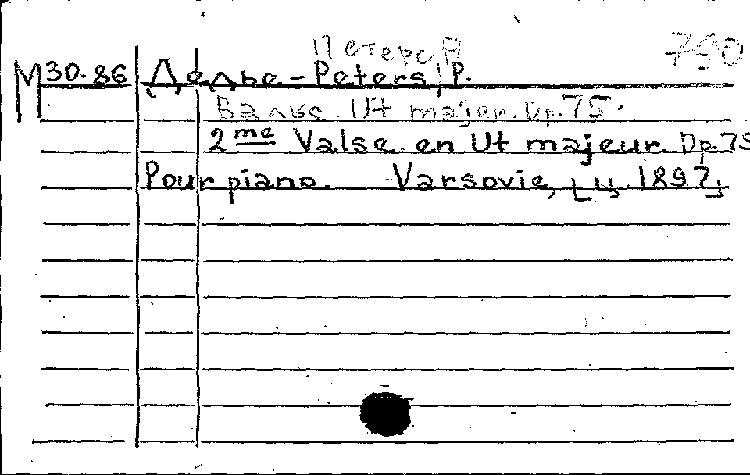 Петерс П 750
М30-86 Делье-Peters, P.
Вальс Ut majeur. Op. 75.
2me Valse en Ut majeur. Op. 75
Pour piano. Varsovie, [ц. 1897]